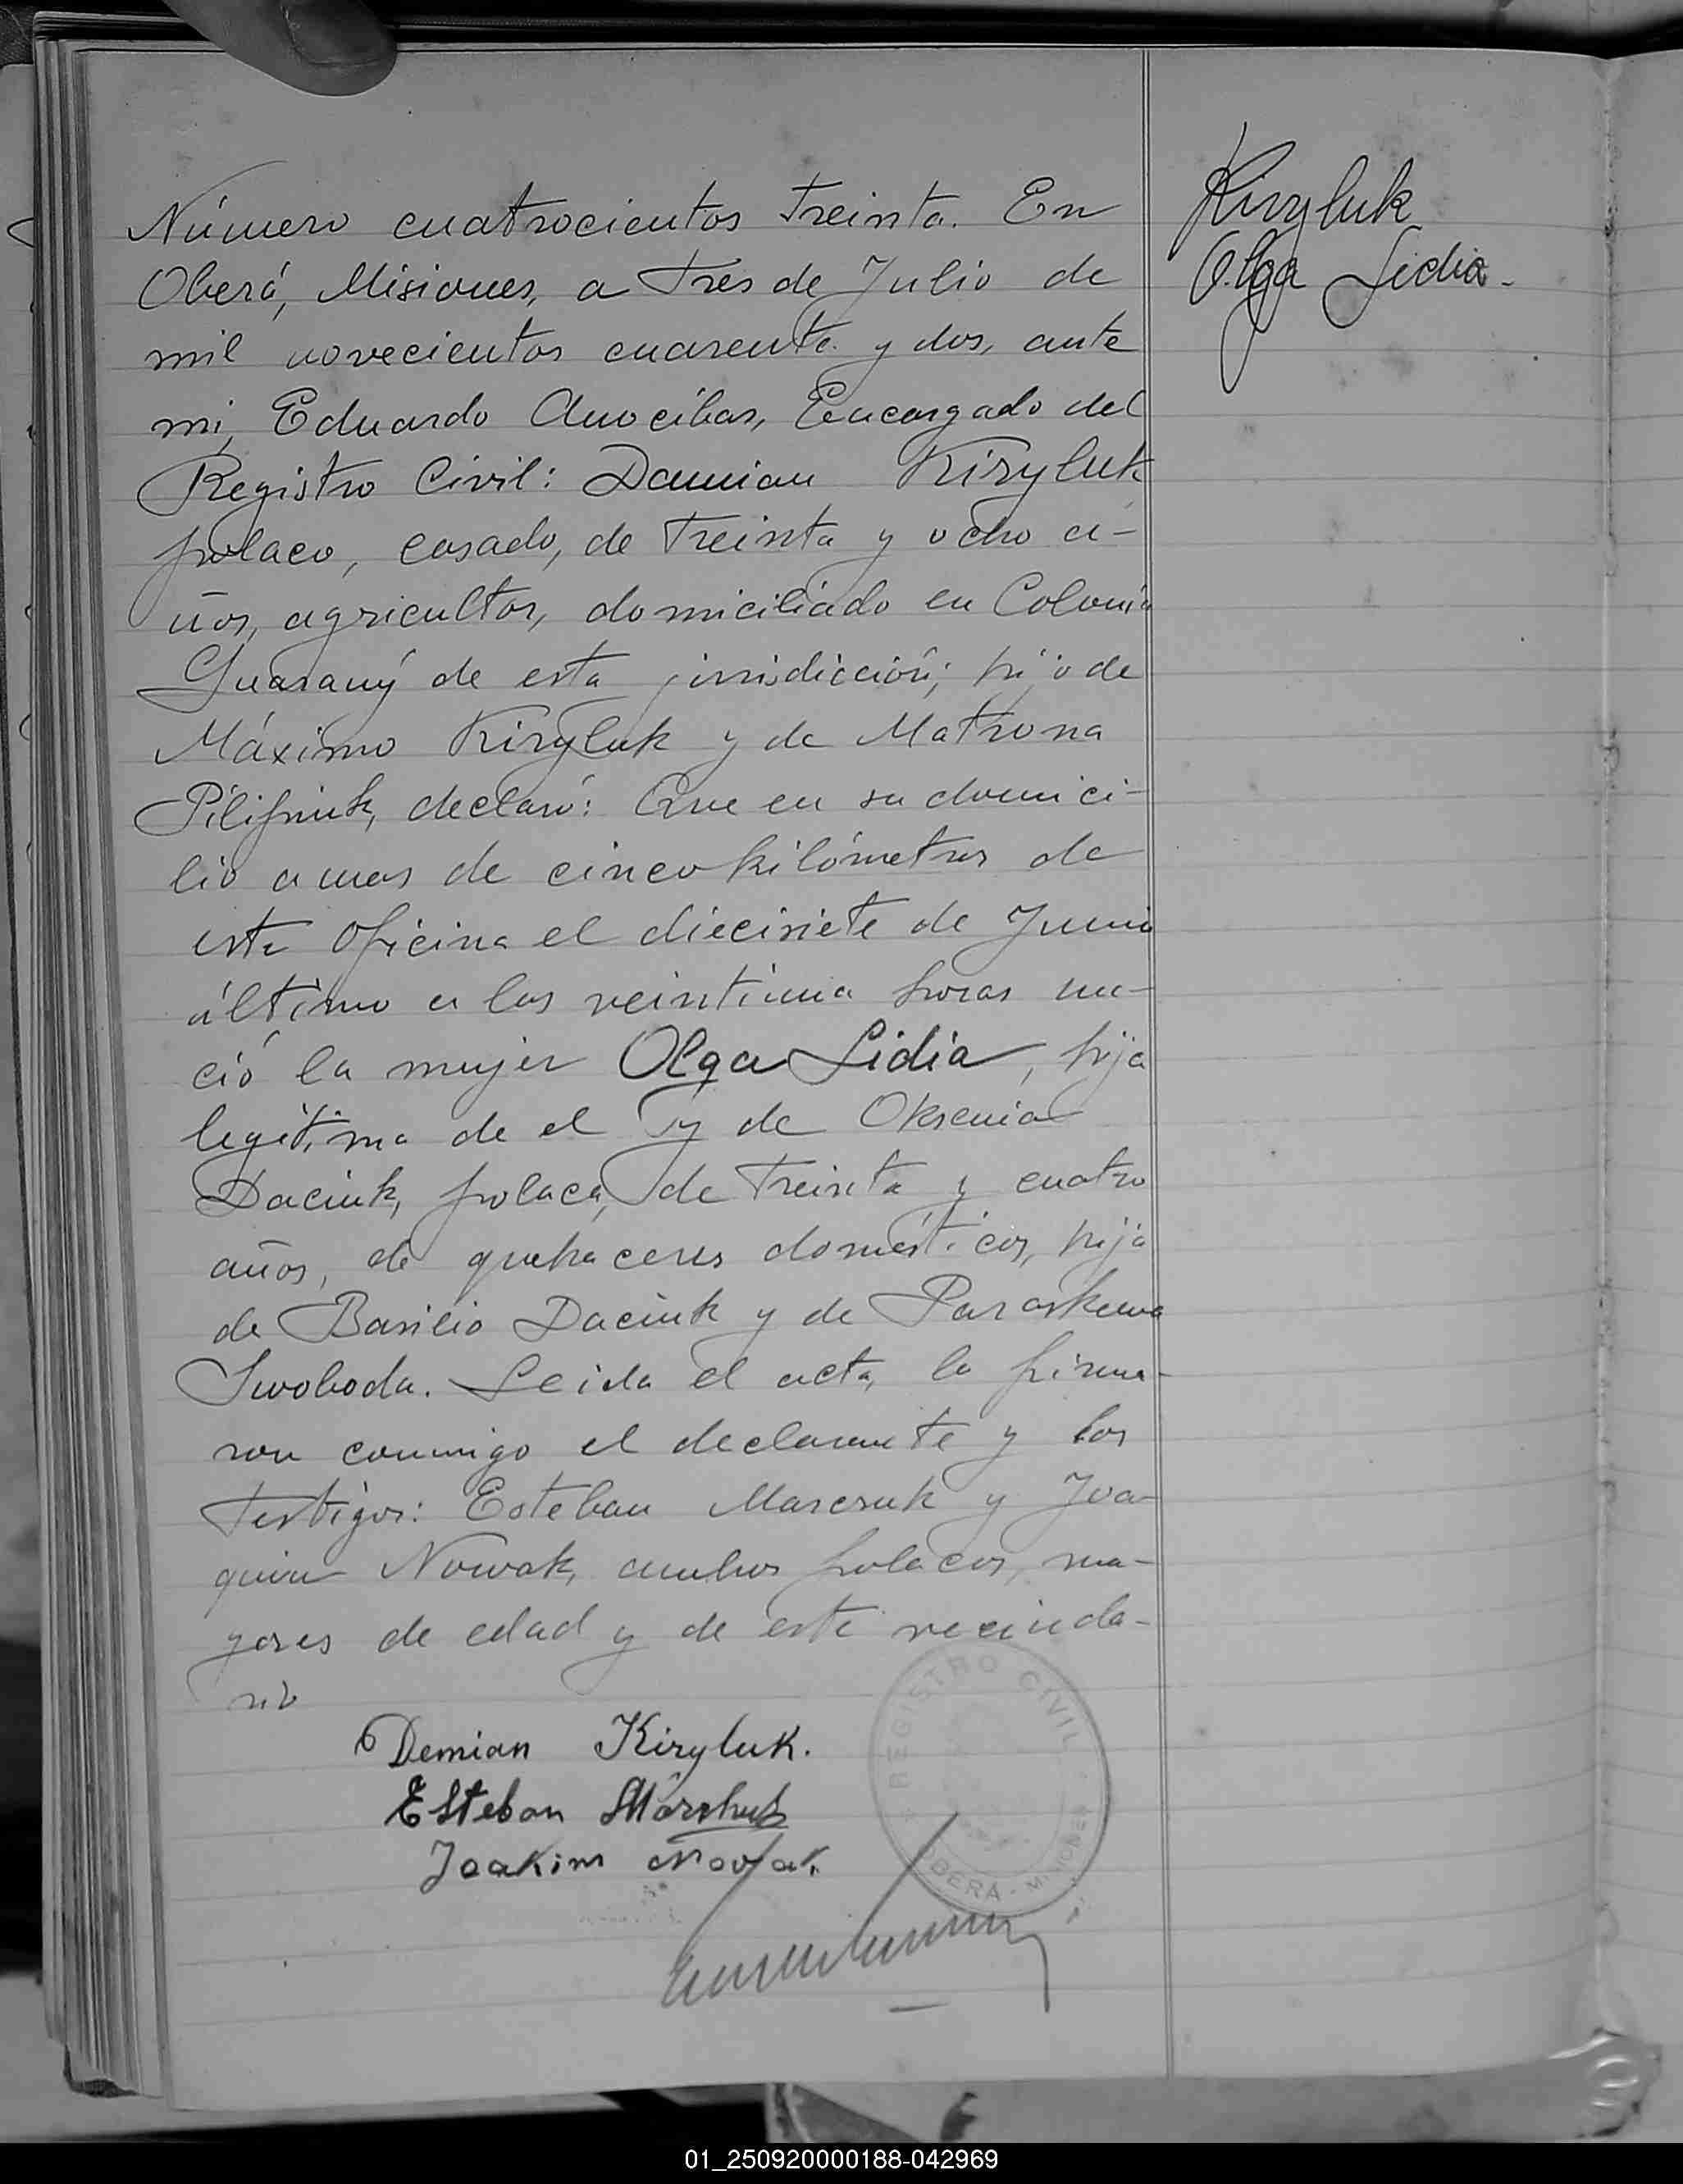 Número cuatrocientos treinta. En
Oberá, Misiones, a tres de Julio de
mil novecientos cuarenta y dos, ante
mi, Eduardo Anocíbar, Encargado del
Registro Civil: Damian Kiryluk
polaco, casado, de treinta y ocho a-
ños, agricultor, domiciliado en Colonia
Guarany de esta jurisdicción; hijo de
Máximo Kiryluk y de Matrona
Pilipiuk, declaró: Que en su domici-
lio a mas de cinco kilómetros de
esta Oficina el diecisiete de Junio
último a las veintiuna horas na-
ció la mujer Olga Lidia, hija
legítima de el y de Oksenia
Daciuk, polaca, de treinta y cuatro
años, de quehaceres domésticos, hija
de Basilio Daciuk y de Paraskewa
Swoboda. Leida el acta, la firma-
ron conmigo el declarante y los
testigos: Esteban Marcsuk y Joa-
quin Nowak, ambos polacos, ma-
yores de edad y de este vecinda-
rio
Demian Kiryluk.
Esteban
Joakim
REGISTRO CIVIL
OBERA - MISIONES
Kiryluk
Olga Lidia.-
01_250920000188-042969